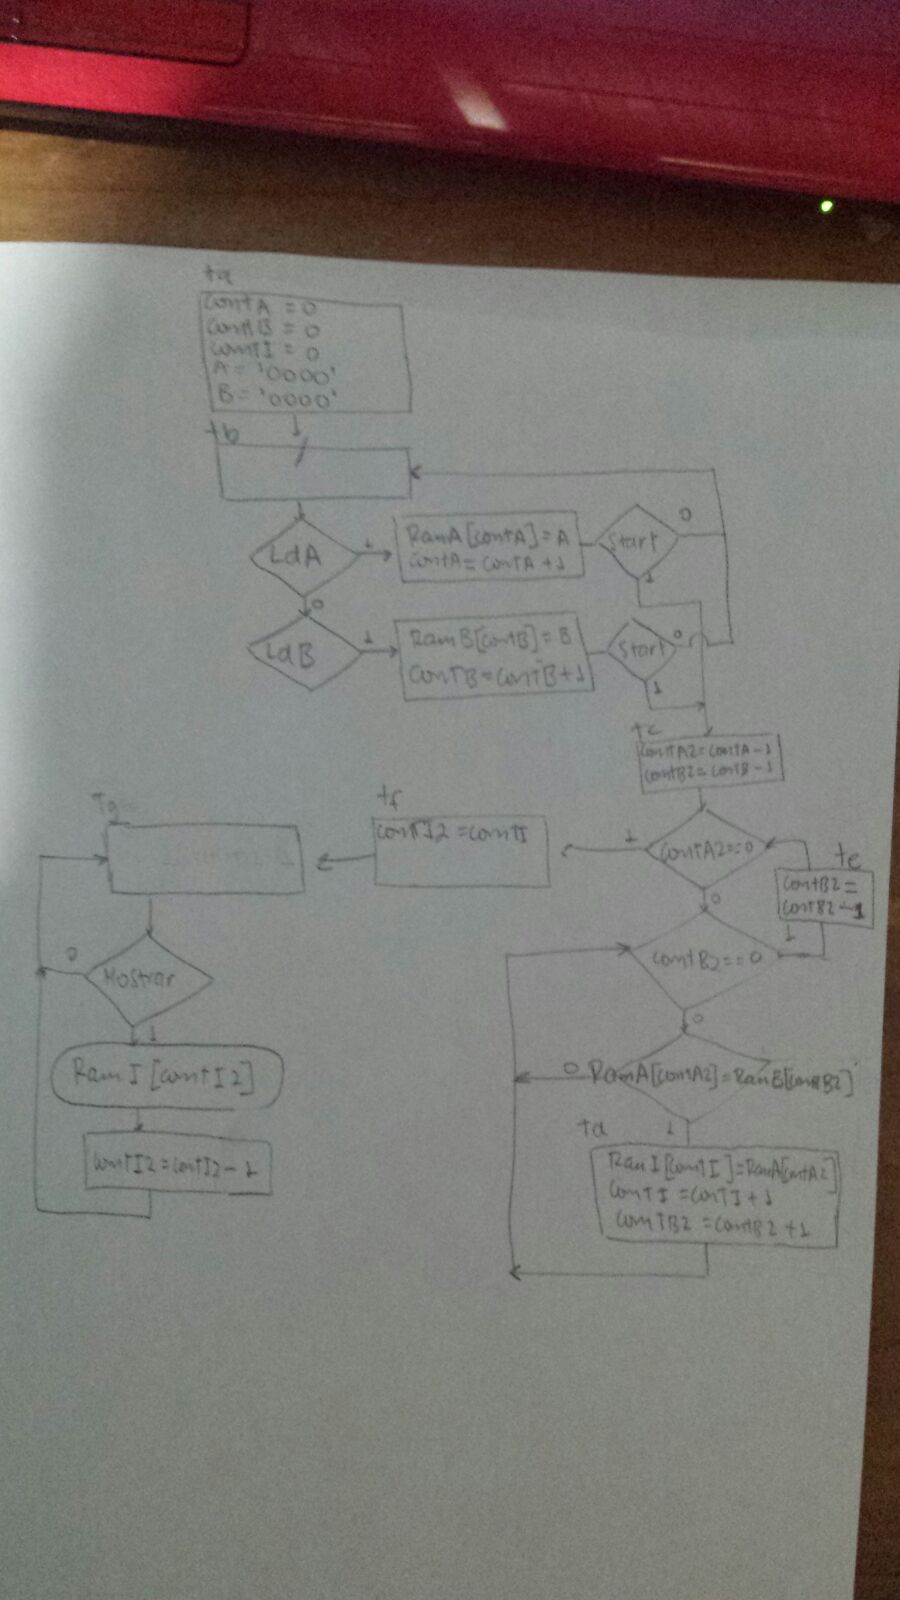 ta
contA = 0
contB = 0
contI = 0
A = '0000'
B = '0000'
tb
LdA
1
RamA[contA] = A
contA = contA + 1
Start
0
1
0
LdB
1
RamB[contB] = B
contB = contB + 1
Start
0
1
tc
contA2 = contA - 1
contB2 = contB - 1
contA2 == 0
1
0
te
contB2 =
contB2 - 1
contB2 == 0
1
0
RamA[contA2] = RamB[contB2]
0
1
td
RamI[contI] = RamA[contA2]
contI = contI + 1
contB2 = contB2 + 1
tf
contI2 = contI
Tg
Mostrar
0
1
RamI[contI2]
contI2 = contI2 - 1